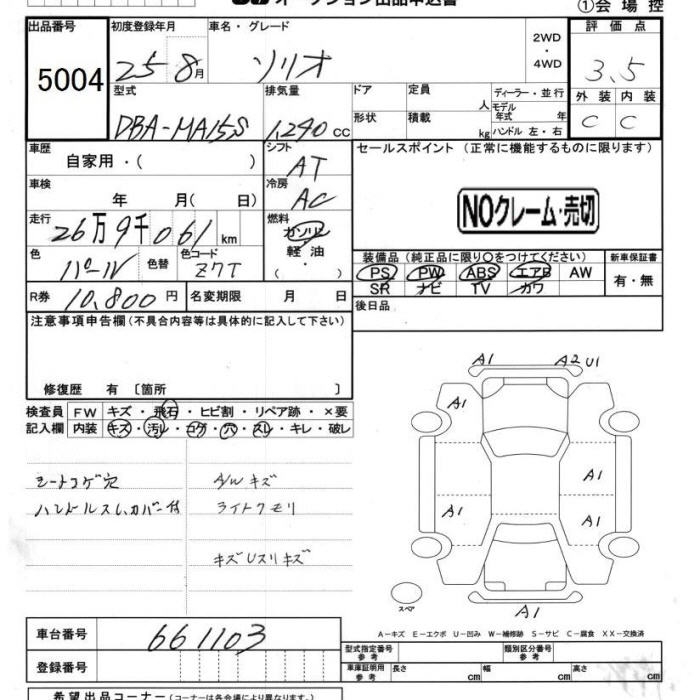 オークション出品申込書
①会場控
出品番号
5004
初度登録年月
25 8月
車名・グレード
ソリオ
2WD
・
4WD
評価点
3.5
外装 内装
C C
型式
DBA-MA15S
排気量
1,240 CC
ドア
形状
定員
人
積載
kg
ディーラー・並行
モデル年式 年
ハンドル 左・右
車歴
自家用・( )
シフト
AT
セールスポイント (正常に機能するものに限ります)
NOクレーム・売切
車検
年 月( 日)
冷房
AC
走行
26万9千061km
燃料
ガソリン
軽・油
( )
色
パール
色替
色コード
Z7T
装備品(純正品に限り○をつけてください)
新車保証書
PS PW ABS エアB AW
有・無
SR ナビ TV カワ
R券 10,800円
名変期限 月 日
後日品
注意事項申告欄(不具合内容等は具体的に記入して下さい)
修復歴 有 〔箇所 〕
検査員 FW キズ・飛石・ヒビ割・リペア跡・×要
記入欄 内装 キズ・汚レ・コゲ・穴・スレ・キレ・破レ
シートコゲ穴
A/W キズ
ハンドルスレ、カバー付
ライトクモリ
キズUスリキズ
A1 A2 U1
A1
A1
A1
A1
A1
スペア
A-キズ E-エクボ U-凹み W-補修跡 S-サビ C-腐食 XX-交換済
車台番号
661103
登録番号
型式指定番号 参考
類別区分番号 参考
車庫証明用 参考
長さ cm
幅 cm
高さ cm
希望出品コーナー(コーナーは各会場により異なります)